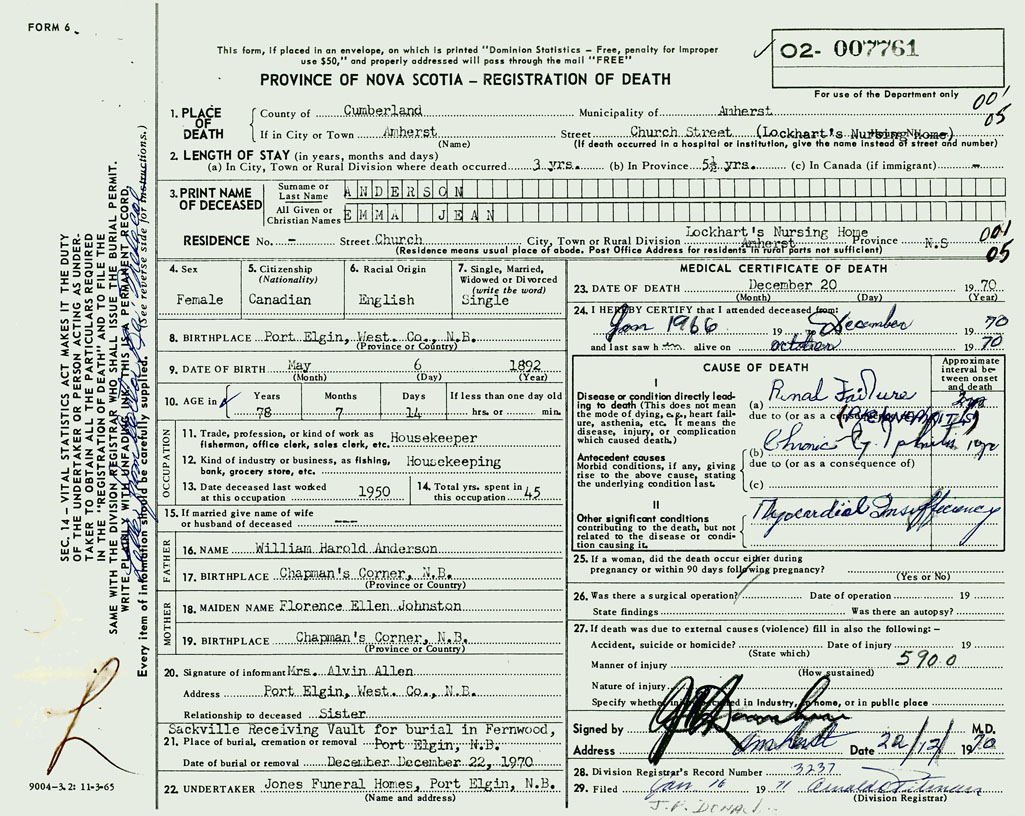 FORM 6
This form, if placed in an envelope, on which is printed "Dominion Statistics – Free, penalty for improper
use $50," and properly addressed will pass through the mail "FREE"
PROVINCE OF NOVA SCOTIA – REGISTRATION OF DEATH
02- 007761
For use of the Department only
001
05
1. PLACE OF DEATH
County of Cumberland Municipality of Amherst
If in City or Town Amherst Street Church Street (Lockhart's Nursing Home)
(Name) (If death occurred in a hospital or institution, give the name instead of street and number)
2. LENGTH OF STAY (in years, months and days)
(a) In City, Town or Rural Division where death occurred 3 yrs. (b) In Province 5½ yrs. (c) In Canada (if immigrant) –
3. PRINT NAME OF DECEASED
Surname or Last Name ANDERSON
All Given or Christian Names EMMA JEAN
Lockhart's Nursing Home
RESIDENCE No. – Street Church City, Town or Rural Division Amherst Province N.S
(Residence means usual place of abode. Post Office Address for residents in rural parts not sufficient)
001
05
4. Sex
Female
5. Citizenship
(Nationality)
Canadian
6. Racial Origin
English
7. Single, Married,
Widowed or Divorced
(write the word)
Single
8. BIRTHPLACE Port Elgin, West. Co., N.B.
(Province or Country)
9. DATE OF BIRTH May 6 1892
(Month) (Day) (Year)
10. AGE in Years Months Days If less than one day old
78 7 14 hrs. or min.
OCCUPATION
11. Trade, profession, or kind of work as
fisherman, office clerk, sales clerk, etc. Housekeeper
12. Kind of industry or business, as fishing,
bank, grocery store, etc. Housekeeping
13. Date deceased last worked
at this occupation 1950
14. Total yrs. spent in
this occupation 45
15. If married give name of wife
or husband of deceased ---
FATHER
16. NAME William Harold Anderson
17. BIRTHPLACE Chapman's Corner, N.B.
(Province or Country)
MOTHER
18. MAIDEN NAME Florence Ellen Johnston
19. BIRTHPLACE Chapman's Corner, N.B.
(Province or Country)
20. Signature of informant Mrs. Alvin Allen
Address Port Elgin, West. Co., N.B.
Relationship to deceased Sister
Sackville Receiving Vault for burial in Fernwood,
21. Place of burial, cremation or removal Port Elgin, N.B.
Date of burial or removal December December 22, 1970
22. UNDERTAKER Jones Funeral Homes, Port Elgin, N.B.
(Name and address)
MEDICAL CERTIFICATE OF DEATH
23. DATE OF DEATH December 20 1970
(Month) (Day) (Year)
24. I HEREBY CERTIFY that I attended deceased from:
Jan 1966 19 to December 1970
and last saw h alive on october 1970
CAUSE OF DEATH
Approximate
interval be-
tween onset
and death
I
Disease or condition directly lead-
ing to death (This does not mean
the mode of dying, e.g., heart fail-
ure, asthenia, etc. It means the
disease, injury, or complication
which caused death.)
(a) Renal Failure
due to (or as a consequence of)
Antecedent causes
Morbid conditions, if any, giving
rise to the above cause, stating
the underlying condition last.
(b) Chronic
due to (or as a consequence of)
(c)
II
Other significant conditions
contributing to the death, but not
related to the disease or condi-
tion causing it.
Myocardial Insufficiency
25. If a woman, did the death occur either during
pregnancy or within 90 days following pregnancy?
(Yes or No)
26. Was there a surgical operation? Date of operation 19
State findings Was there an autopsy?
27. If death was due to external causes (violence) fill in also the following: –
Accident, suicide or homicide? Date of injury 19
(State which)
Manner of injury 5900
(How sustained)
Nature of injury
Specify whether injury occurred in Industry, in home, or in public place
Signed by M.D.
Address Amherst Date 22/12/1970
28. Division Registrar's Record Number 3237
29. Filed Jan 16 1971
(Division Registrar)
SEC. 14 – VITAL STATISTICS ACT MAKES IT THE DUTY
OF THE UNDERTAKER OR PERSON ACTING AS UNDER-
TAKER TO OBTAIN ALL THE PARTICULARS REQUIRED
IN THE "REGISTRATION OF DEATH" AND TO FILE THE
SAME WITH THE DIVISION REGISTRAR WHO SHALL ISSUE THE BURIAL PERMIT.
WRITE PLAINLY WITH UNFADING INK. THIS IS A PERMANENT RECORD.
Every item of information should be carefully supplied. (See reverse side for instructions.)
9004-3.2: 11-3-65